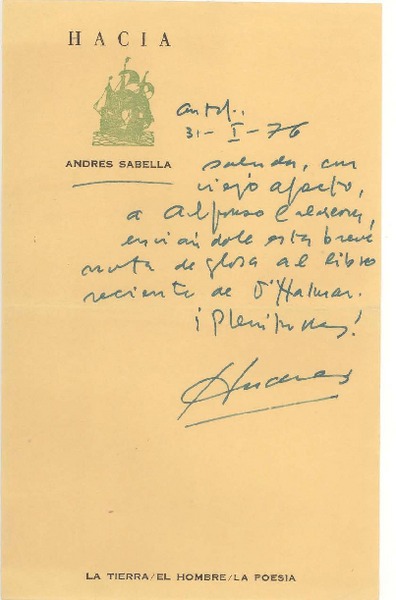 HACIA
ANDRES SABELLA
Antof.,
31-I-76
saluda, con
viejo afecto,
a Alfonso Calderón,
enviándole esta breve
nota de glosa al libro
reciente de D'Halmar.
Andrés
LA TIERRA/EL HOMBRE/LA POESIA